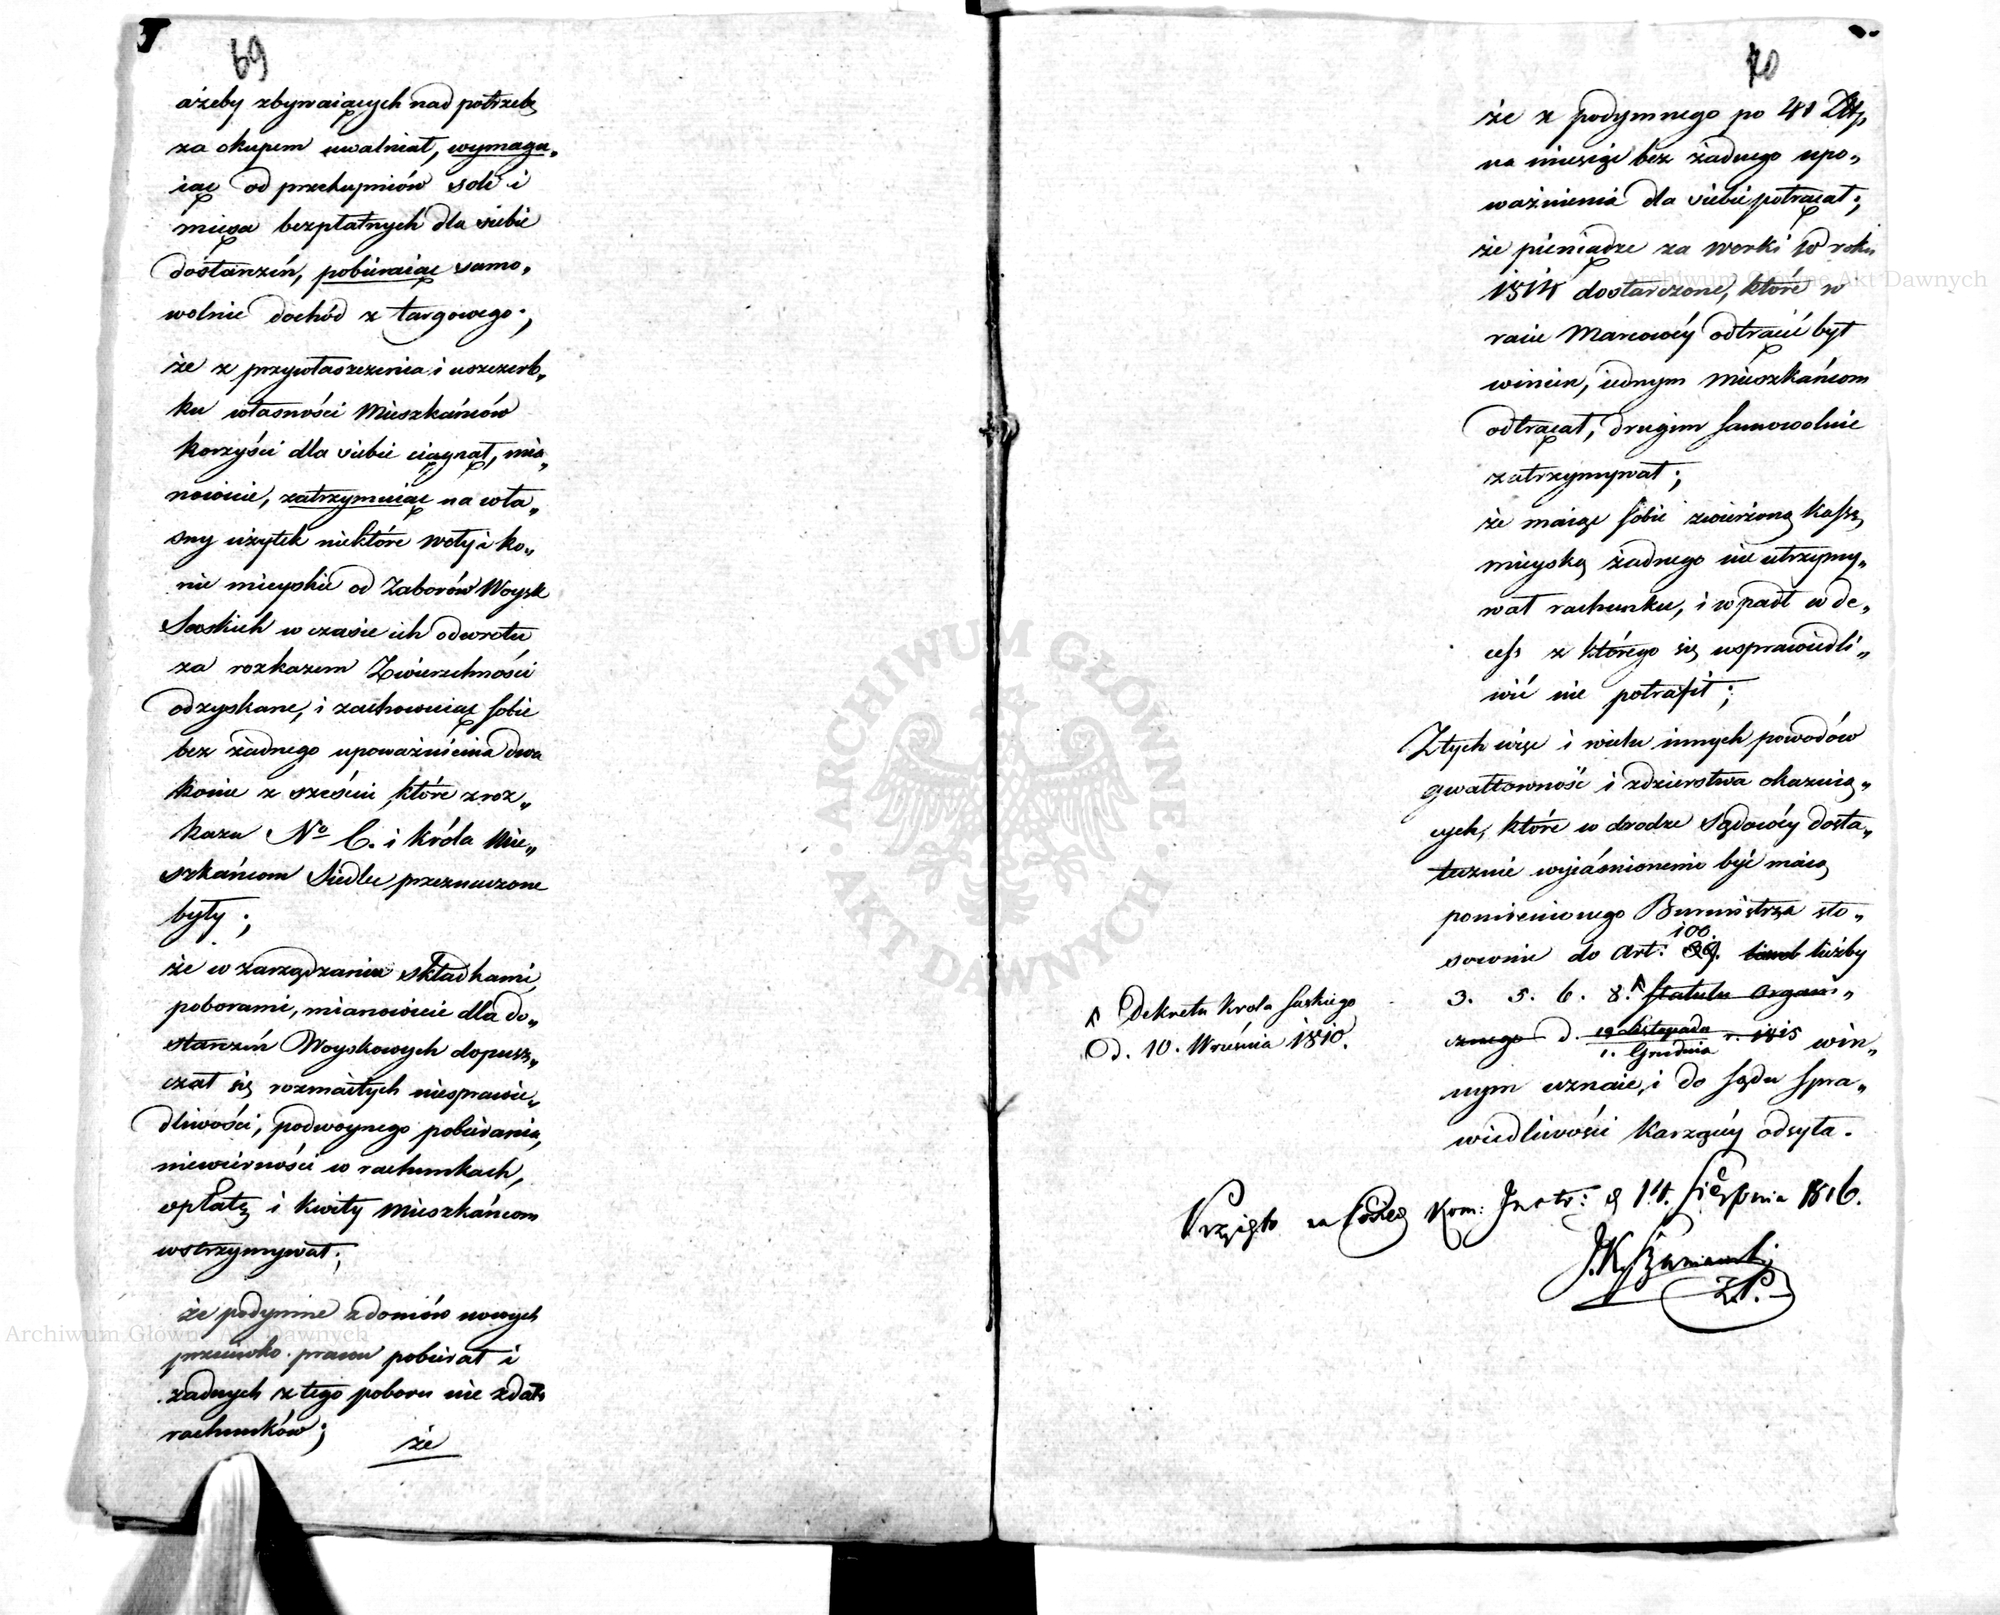 69
ażeby zbywaiących nad potrzebę
za okupem uwalniał, wymaga„
iąc od przekupniów soli i
mięsa bezpłatnych dla siebie
dostarczeń, pobieraiąc samo„
wolnie dochód z targowego;
że z przywłaszczenia i uszczerb„
ku własności Mieszkańców
korzyści dla siebie ciągnął, mia„
nowicie, zatrzymuiąc na wła„
sny użytek niektóre Woły i ko„
nie mieyskie od Zaborów Woysk
Saskich w czasie ich odwrotu
za rozkazem Zwierzchności
odzyskane, i zachowuiąc sobie
bez żadnego upoważnienia dwa
konie z sześciu, które z roz„
kazu N° C. i Króla Mie„
szkańcom Siedlec przeznaczone
były;
że w zarządzaniu składkami,
poborami, mianowicie dla do„
starczeń Woyskowych dopusz„
czał się rozmaitych niesprawie„
dliwości, podwoynego pobierania,
niewierności w rachunkach,
opłatę i kwity Mieszkańcom
wstrzymywał;
że podymne z domów nowych
przeciwko prawu pobierał i
żadnych z tego poboru nie zdał
rachunków;
że
70
że z podymnego po 41 Złp.
na miesiąc bez żadnego upo„
ważnienia dla siebie potrącał;
że pieniądze za worki w roku
1814 dostarczone, które w
racie Marcowéy odtrącić był
winien, iednym Mieszkańcom
odtrącał, drugim samowolnie
zatrzymywał;
że maiąc sobie zwierzoną Kassę
mieyską żadnego nie utrzymy„
wał rachunku, i wpadł w de„
cess z którego się usprawiedli„
wić nie potrafił;
Z tych więc i wielu innych powodów
gwałtowność i zdzierstwa okazuią„
cych, które w drodze Sądowéy dosta„
tecznie wyjaśnionemi być maią
pomienionego Burmistrza sto„
100.
sownie do Art: liczby
3. 5. 6. 8. Statutu Organi„
cznego d. 19 Listopada / 1. Grudnia r. 1815 win„
nym uznaie, i do Sądu Spra„
wiedliwości Karzącéy odsyła.
Dekretu Krola Saskiego
d. 10. Września 1810.
Przyięto na Kom: Instr: d 14. Sierpnia 1816.
J.K. Szaniawski
Z.P.
Archiwum Główne Akt Dawnych
Archiwum Główne Akt Dawnych
ARCHIWUM GŁÓWNE
AKT DAWNYCH